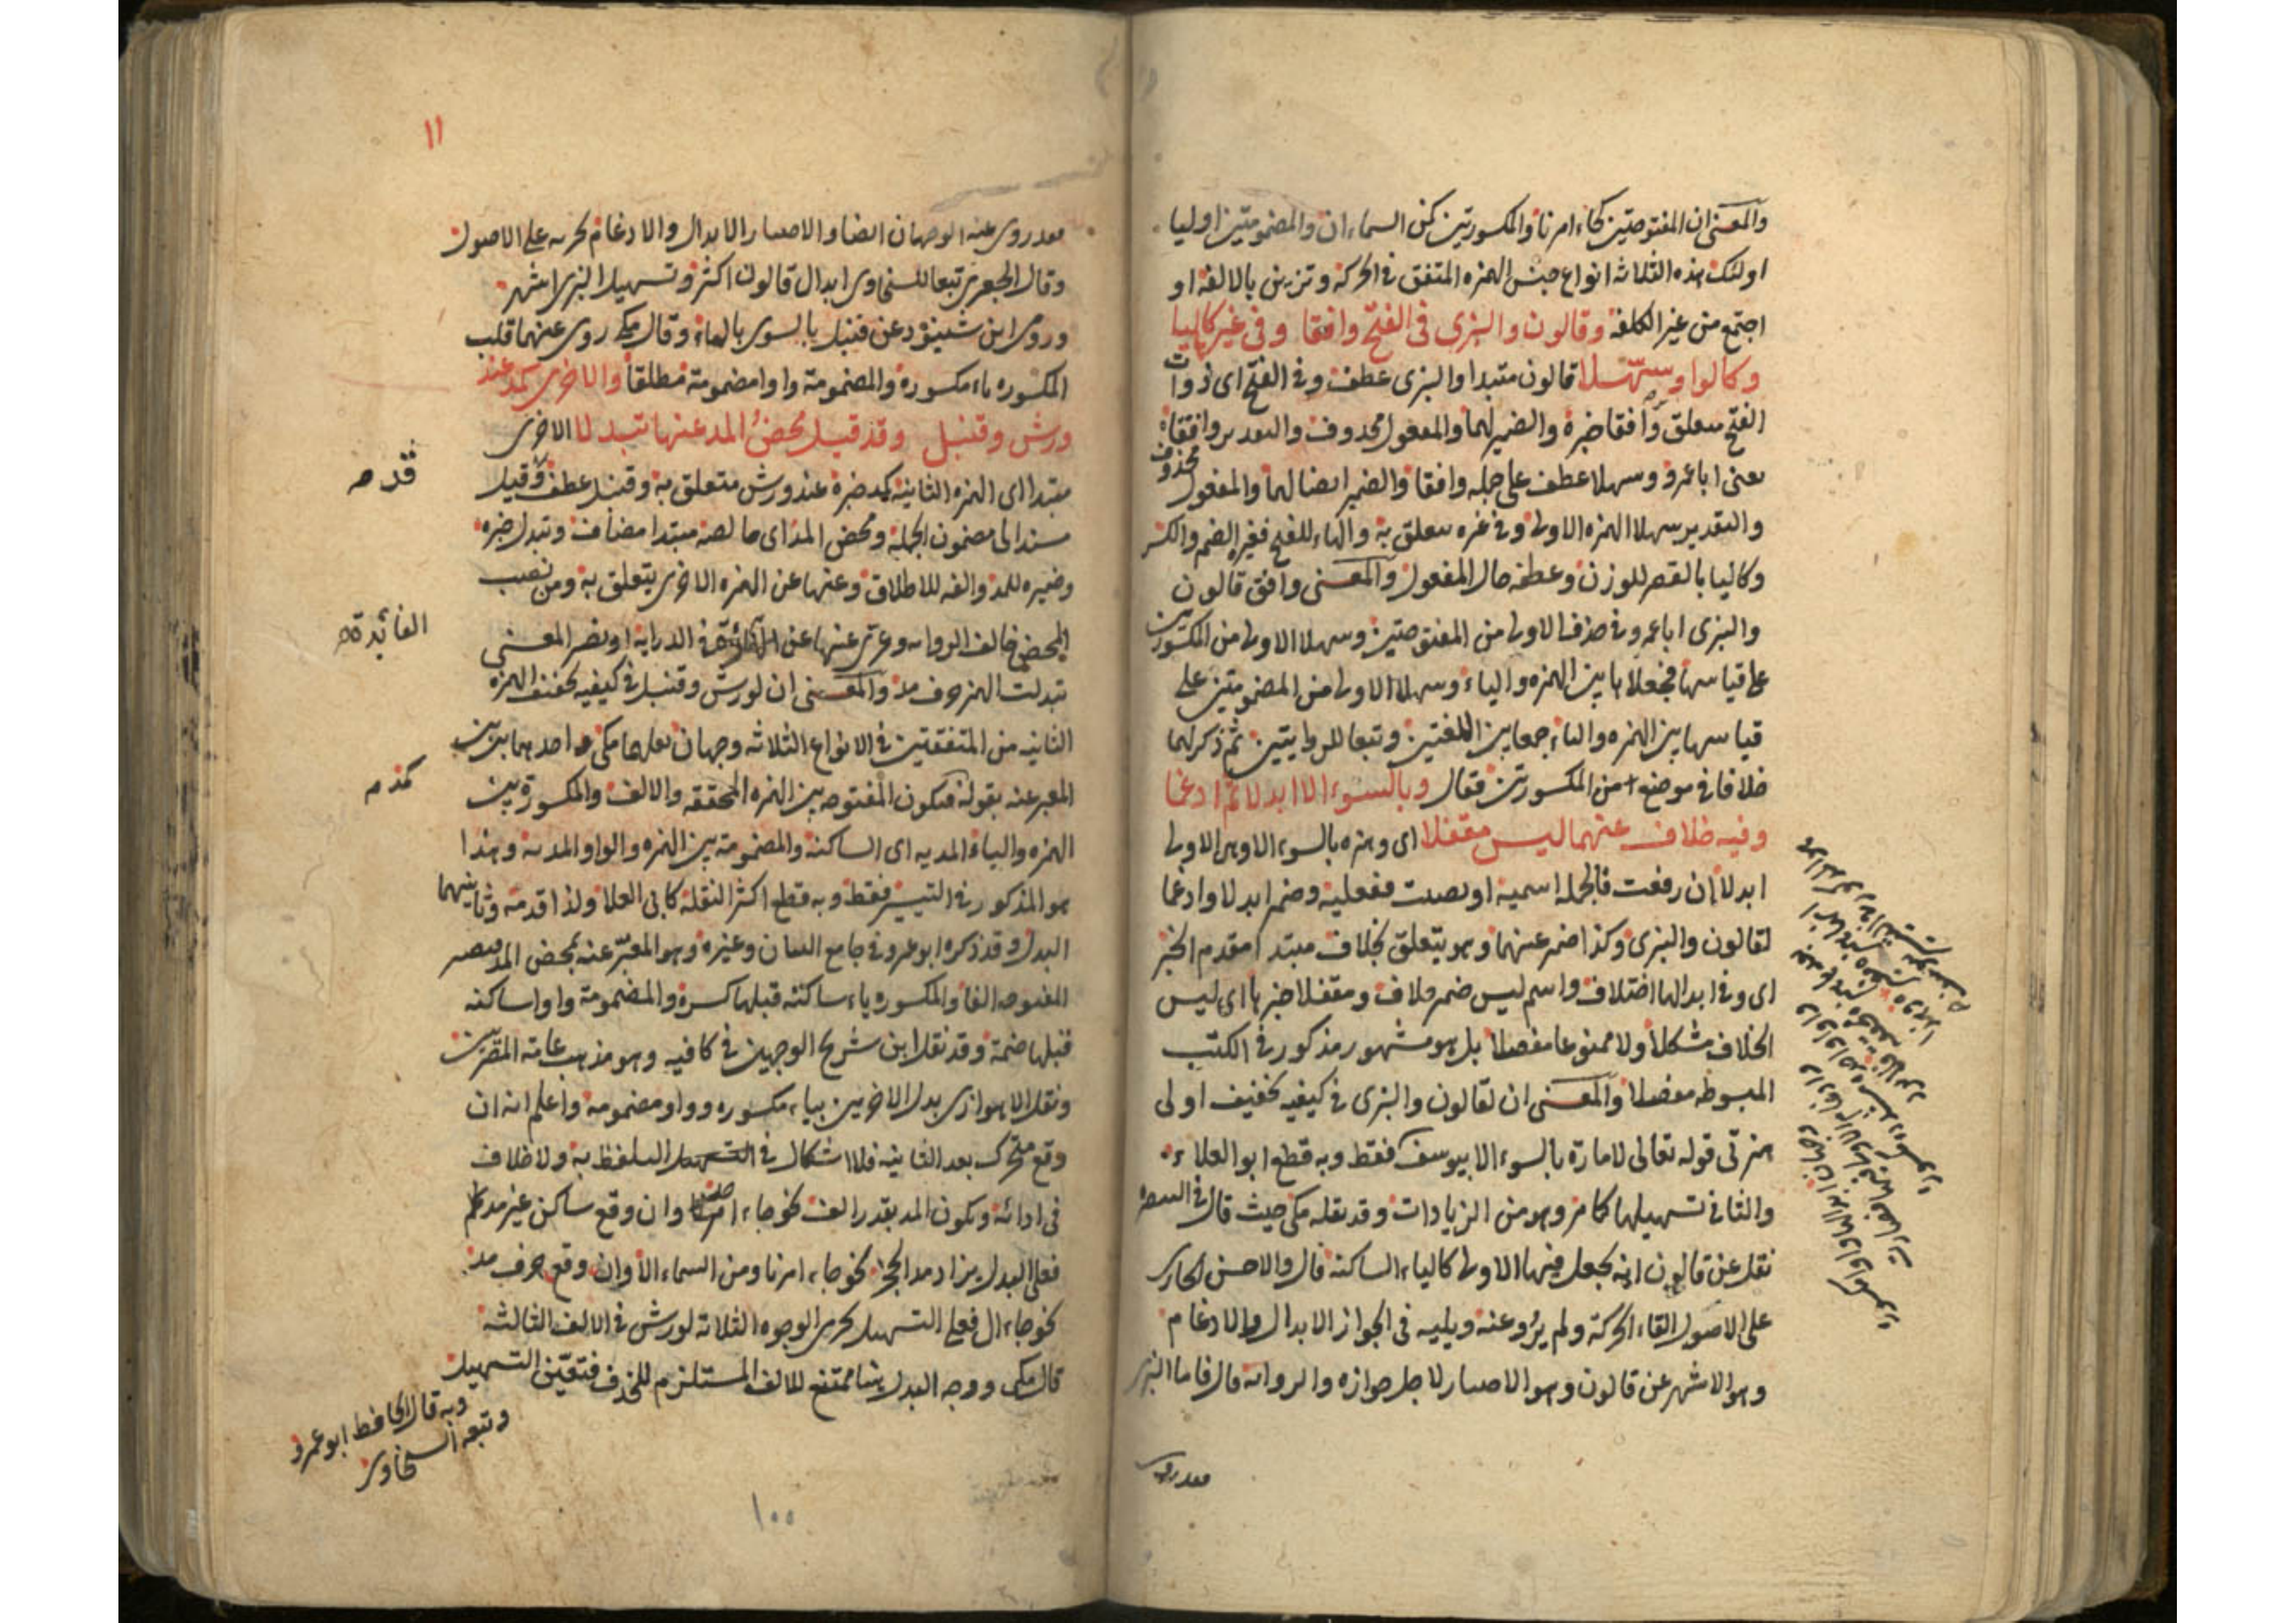 والمعنى ان المفتوحتين كجاء امرنا والمكسورتين كمن السماء ان والمضمومتين اوليا
اولئك هذه الثلاثة انواع جنس الهمزة المتفق في الحركة وتزين بالالفة او
اجتمع من غير الكلفة وقالون والبزى فى الفتح وافقا وفى غيره كاليا
وكالواو سهّلا قالون مبتدا والبزى عطف وفى الفتح اى ذوات
الفتح متعلق وافقا خبره والضمير لهما والمفعول محذوف والتقدير وافقاه
يعنى ابا عمرو وسهلا عطف على جملة وافقا والضمير ايضا لهما والمفعول
محذوف
والتقدير سهلا الهمزة الاولى وفى غيره متعلق به والهاء للفتح فغيره الضم والكسر
وكاليا بالقصر للوزن وعطفه حال المفعول والمعنى وافق قالون
والبزى ابا عمرو فى حذف الاولى من المفتوحتين وسهلا الاولى من المكسورتين
على قياسها فجعلاها بين الهمزة والياء وسهلا الاولى من المضمومتين على
قياسها بين الهمزة والواو جمعا بين اللغتين وتبعا للروايتين ثم ذكر لهما
خلافا فى موضع من المكسورتين فقال وبالسوء الا ابدلا ثم ادغما
وفيه خلاف عنهما ليس مقفلا اى وهمزة بالسوء الا وهى الاولى
ابدلا ان رفعت فالجملة اسمية او نصبت ففعلية وضمير ابدلا وادغما
لقالون والبزى وكذا ضمير عنهما وهو يتعلق بخلاف مبتدا مقدم الخبر
اى وفى ابدالها اختلاف واسم ليس ضمير خلاف ومقفلا خبرها اى ليس
الخلاف مشكلا ولا ممنوعا مفصلا بل هو مشهور مذكور فى الكتب
المبسوطة مفصلا والمعنى ان لقالون والبزى فى كيفية تخفيف اولى
همزتى قوله تعالى لامارة بالسوء الا بيوسف فقط وبه قطع ابو العلاء
والثانى تسهيلها كما مر وهو من الزيادات وقد نقله مكى حيث قال فى التبصرة
نقل عن قالون انه يجعل فيها الاولى كالياء الساكنة قال والاحسن الجارى
على الاصول القاء الحركة ولم يرو عنه ويليه فى الجواز الابدال والادغام
وهو الاشهر عن قالون وهو الاختيار لاجل جوازه والرواية قال فاما البزى
فقد روى
١١
فقد روى عنه الوجهان ايضا والاختيار الابدال والادغام لجريه على الاصول
وقال الجعبرى تبعا للسخاوى ابدال قالون اكثر وتسهيل البزى اشهر
وروى ابن شنبوذ عن قنبل بالسوى بالياء وقال مكى روى عنهما قلب
المكسورة ياء مكسورة والمضمومة واوا مضمومة مطلقا والاخرى كمد عند
ورش وقنبل وقد قيل محض المد عنها تبدلا الاخرى
مبتدا اى الهمزة الثانية كمد خبره عند ورش متعلق به وقنبل عطف وقيل
قد م
مسند الى مضمون الجملة ومحض المد اى خالصه مبتدا مضاف وتبدل خبره
وضميره للمد والفه للاطلاق وعنها عن الهمزة الاخرى يتعلق به ومن نصب
المحض خالف الرواية وعرى عنها عن الفائدة فى الدراية او يصير المعنى
الفائدة
تبدلت الهمز حرف مد والمعنى ان لورش وقنبل فى كيفية تخفيف الهمزة
الثانية من المتفقتين فى الانواع الثلاثة وجهان نقلهما مكى احدهما بين بين
المعبر عنه بقوله فتكون المفتوحة بين الهمزة المحققة والالف والمكسورة بين
كمد م
الهمزة والياء المدية اى الساكنة والمضمومة بين الهمزة والواو المدية وهذا
هو المذكور فى التيسير فقط وبه قطع اكثر النقلة كابى العلا ولذا قدمه وثانيهما
البدل وقد ذكره ابو عمرو فى جامع البيان وغيره وهو المعبّر عنه بمحض المد فيصير
المفتوحة الفا والمكسورة ياء ساكنة قبلها كسرة والمضمومة واوا ساكنة
قبلها ضمة وقد نقل ابن شريح الوجهين فى كافيه وهو مذهب عامة المصريين
ونقل الاهوازى بدل الاخريين بياء مكسورة وواو مضمومة واعلم انه ان
وقع متحرك بعد الثانية فلا اشكال فى التلفظ به ولا خلاف
فى ادائه ويكون المد بقدر الف نحو جاء احد وان وقع ساكن غير مد
فعلى البدل يزاد مد الحجز نحو جاء امرنا ومن السماء الا وان وقع حرف مد
نحو جاء ال فعلى التسهيل يجرى الوجوه الثلاثة لورش فى الالف الثالثة
قال مكى ووجه البدل هنا ممتنع للالف المستلزم للحذف فتعيّن التسهيل
وبه قال الحافظ ابو عمرو
وتبعه السخاوى
١٠٠